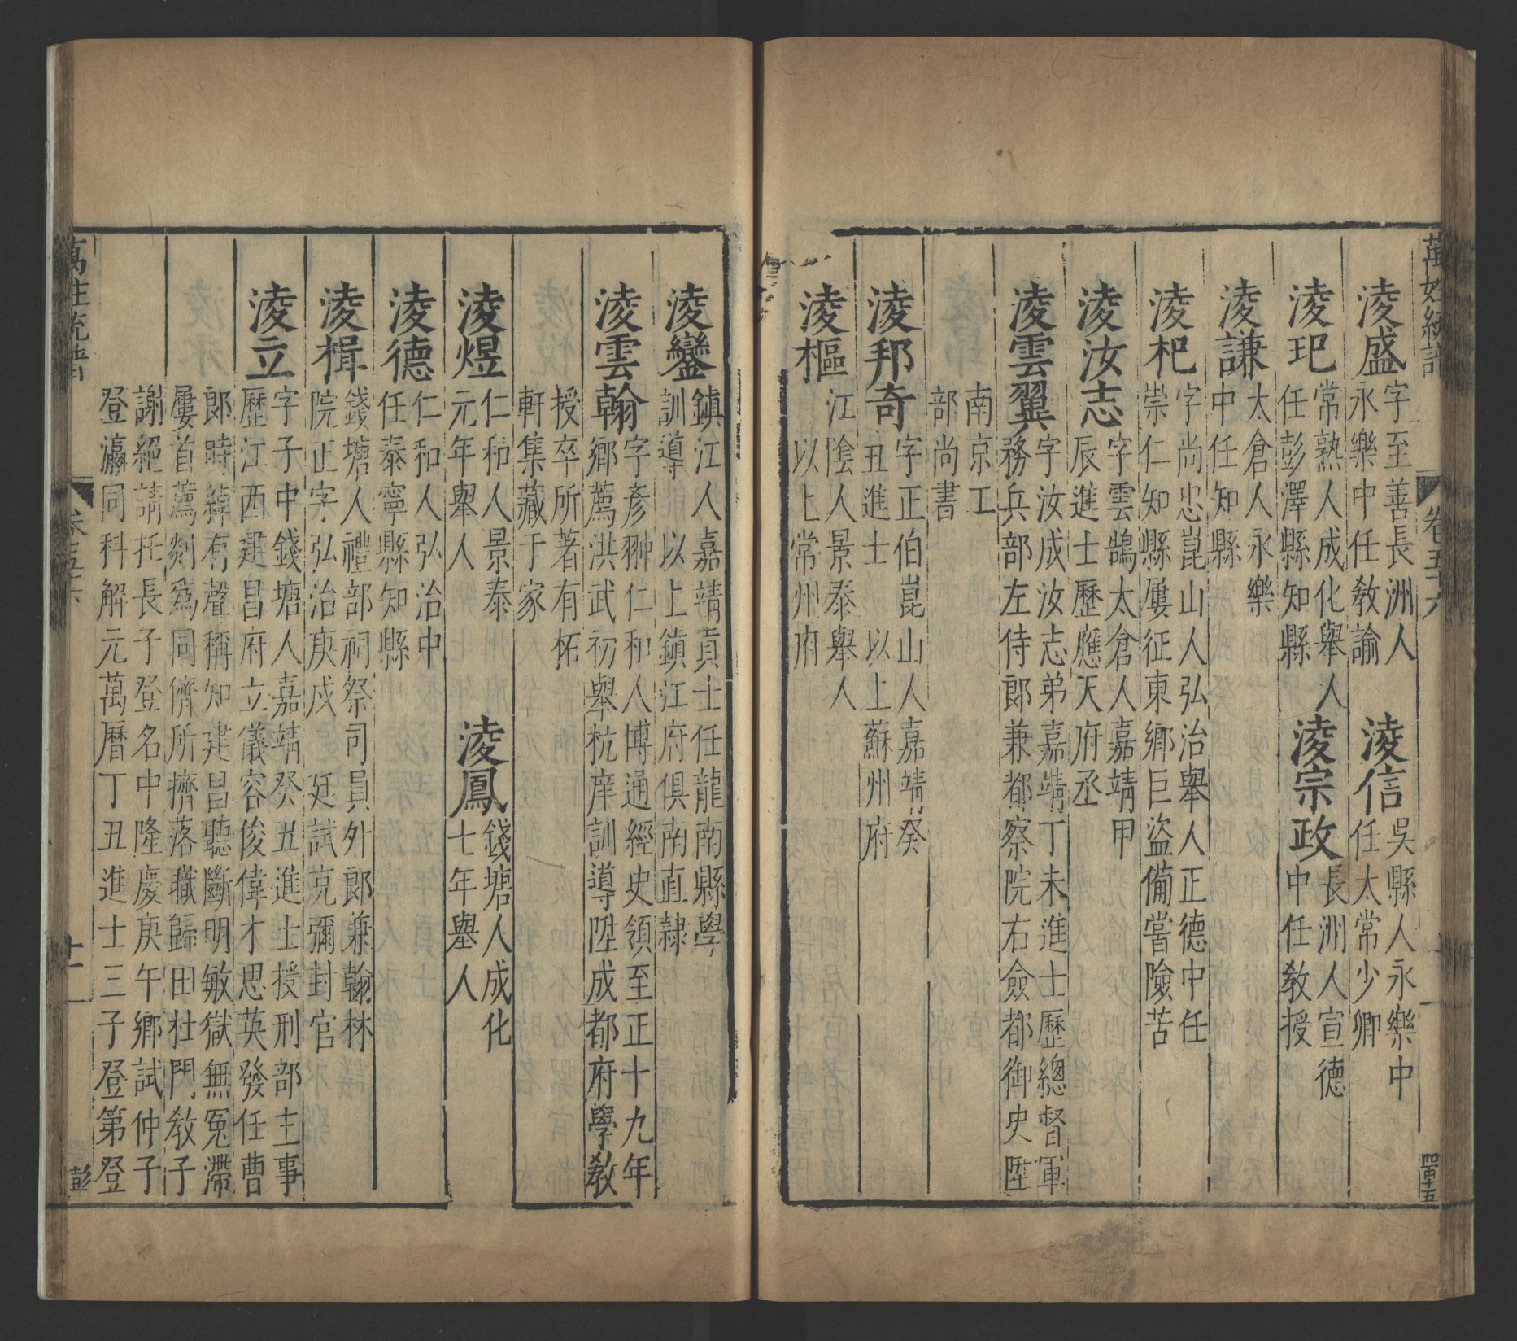 萬姓統譜
卷五十六
四百十五
淩盛
字至善長洲人
永樂中任敎諭
淩信
吳縣人永樂中
任太常少卿
淩玘
常熟人成化舉人
任彭澤縣知縣
淩宗政
長洲人宣德
中任敎授
淩謙
太倉人永樂
中任知縣
淩杞
字尚忠崑山人弘治舉人正德中任
崇仁知縣屢征東鄉巨盜備嘗險苦
淩汝志
字雲鵠太倉人嘉靖甲
辰進士歷應天府丞
淩雲翼
字汝成汝志弟嘉靖丁未進士歷總督軍
務兵部左侍郎兼都察院右僉都御史陞
南京工
部尚書
淩邦奇
字正伯崑山人嘉靖癸
丑進士 以上蘇州府
淩樞
江陰人景泰舉人
以上常州府
淩鑾
鎮江人嘉靖貢士任龍南縣學
訓導 以上鎮江府俱南直隸
淩雲翰
字彥翀仁和人博通經史領至正十九年
鄉薦洪武初舉杭庠訓導陞成都府學敎
授卒所著有柘
軒集藏于家
淩煜
仁和人景泰
元年舉人
淩鳳
錢塘人成化
七年舉人
淩德
仁和人弘治中
任泰寧縣知縣
淩楫
錢塘人禮部祠祭司員外郎兼翰林
院正字弘治庚戌 廷試充彌封官
淩立
字子中錢塘人嘉靖癸丑進士授刑部主事
歷江西建昌府立儀容俊偉才思英發任曹
郎時綽有聲稱知建昌聽斷明敏獄無冤滯
屢首薦剡爲同儕所擠落職歸田杜門敎子
謝絕請托長子登名中隆慶庚午鄉試仲子
登瀛同科解元萬曆丁丑進士三子登第登
萬姓統譜
卷五十六
十一
彭